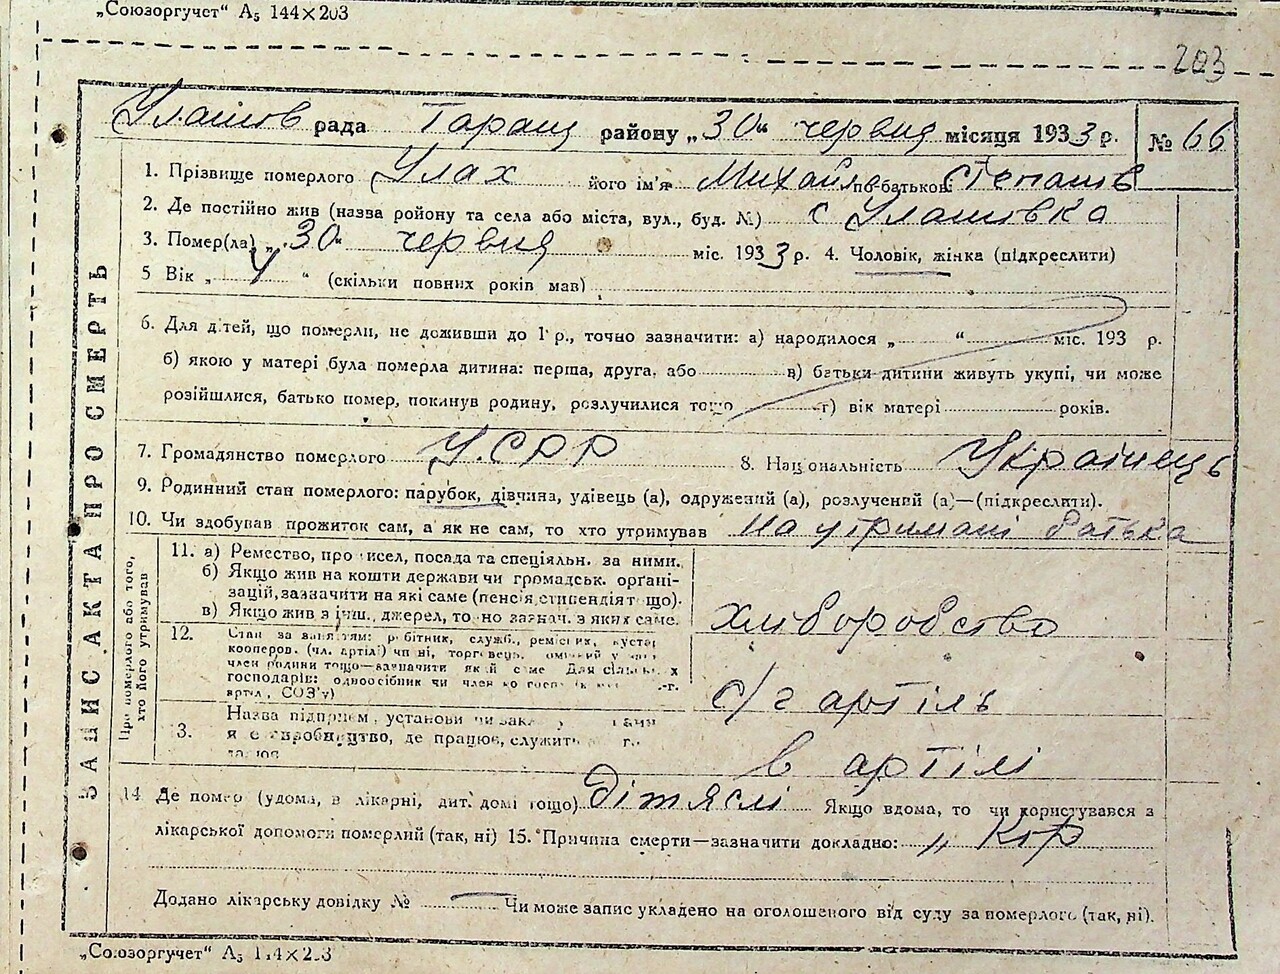 „Союзоргучет“ А₅ 144×203
203
Улашів рада Таращ району „30“ червня місяця 1933 р. № 66
1. Прізвище померлого Улах його ім'я Михайло по-батькові Степанів
2. Де постійно жив (назва ройону та села або міста, вул., буд. №) с Улашівка
3. Помер(ла) „30“ червня міс. 1933 р. 4. Чоловік, жінка (підкреслити)
5 Вік „ 4 “ (скільки повних років мав)
6. Для дітей, що померли, не доживши до 1 р., точно зазначити: а) народилося „ “ міс. 193 р.
б) якою у матері була померла дитина: перша, друга, або в) батьки дитини живуть укупі, чи може
розійшлися, батько помер, покинув родину, розлучилися тощо г) вік матері років.
7. Громадянство померлого У.СРР 8. Національність Українець
9. Родинний стан померлого: парубок, дівчина, удівець (а), одружений (а), розлучений (а)—(підкреслити).
10. Чи здобував прожиток сам, а як не сам, то хто утримував На утримані батька
ЗАПИС АКТА ПРО СМЕРТЬ
Про померлого або того, хто його утримував
11. а) Ремество, про исел, посада та спеціяльн. за ними.
б) Якщо жив на кошти держави чи громадськ. орґані-
зацій, зазначити на які саме (пенсія, стипендія т що).
в) Якщо жив з інш. джерел, то но зазнач. з яких саме.
хліборобство
12. Стан за заняттям: р бітник, служб., ремісник, куста
кооперов. (чл. артілі) чи ні, торговець.
член родини тощо—зазначити який с ме Для сільськ х
господарів: одноосібник чи член ко госп
артіл, СОЗ'у)
с/г артіль
Назва підприєм, установи чи зак
3. я є виробництво, де працює, служить
в артілі
14 Де помер (удома, в лікарні, дит. домі тощо) Дітяслі Якщо вдома, то чи користувався з
лікарської допомоги померлий (так, ні) 15. Причина смерти—зазначити докладно: „ Кір
Додано лікарську довідку № — Чи може запис укладено на оголошеного від суду за померлого (так, ні).
„Союзоргучет“ А₅ 144×203